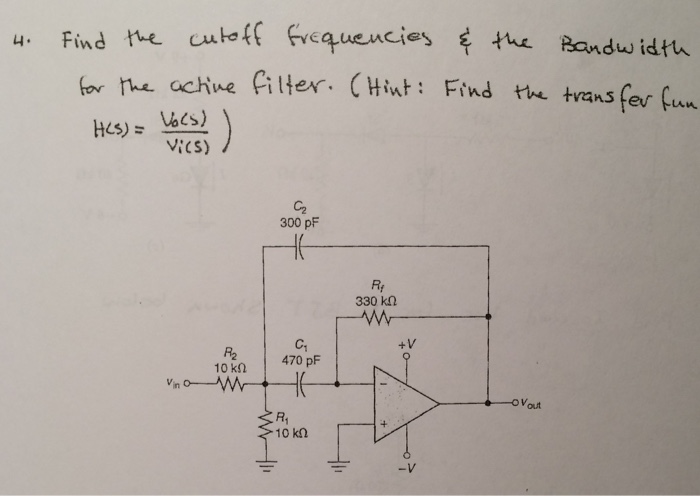 4. Find the cutoff frequencies & the Bandwidth
for the active filter. (Hint: Find the transfer fun
H(s) = Vo(s) / Vi(s) )
C2
300 pF
Rf
330 kΩ
R2
10 kΩ
C1
470 pF
+V
Vin
−
+
Vout
R1
10 kΩ
−V